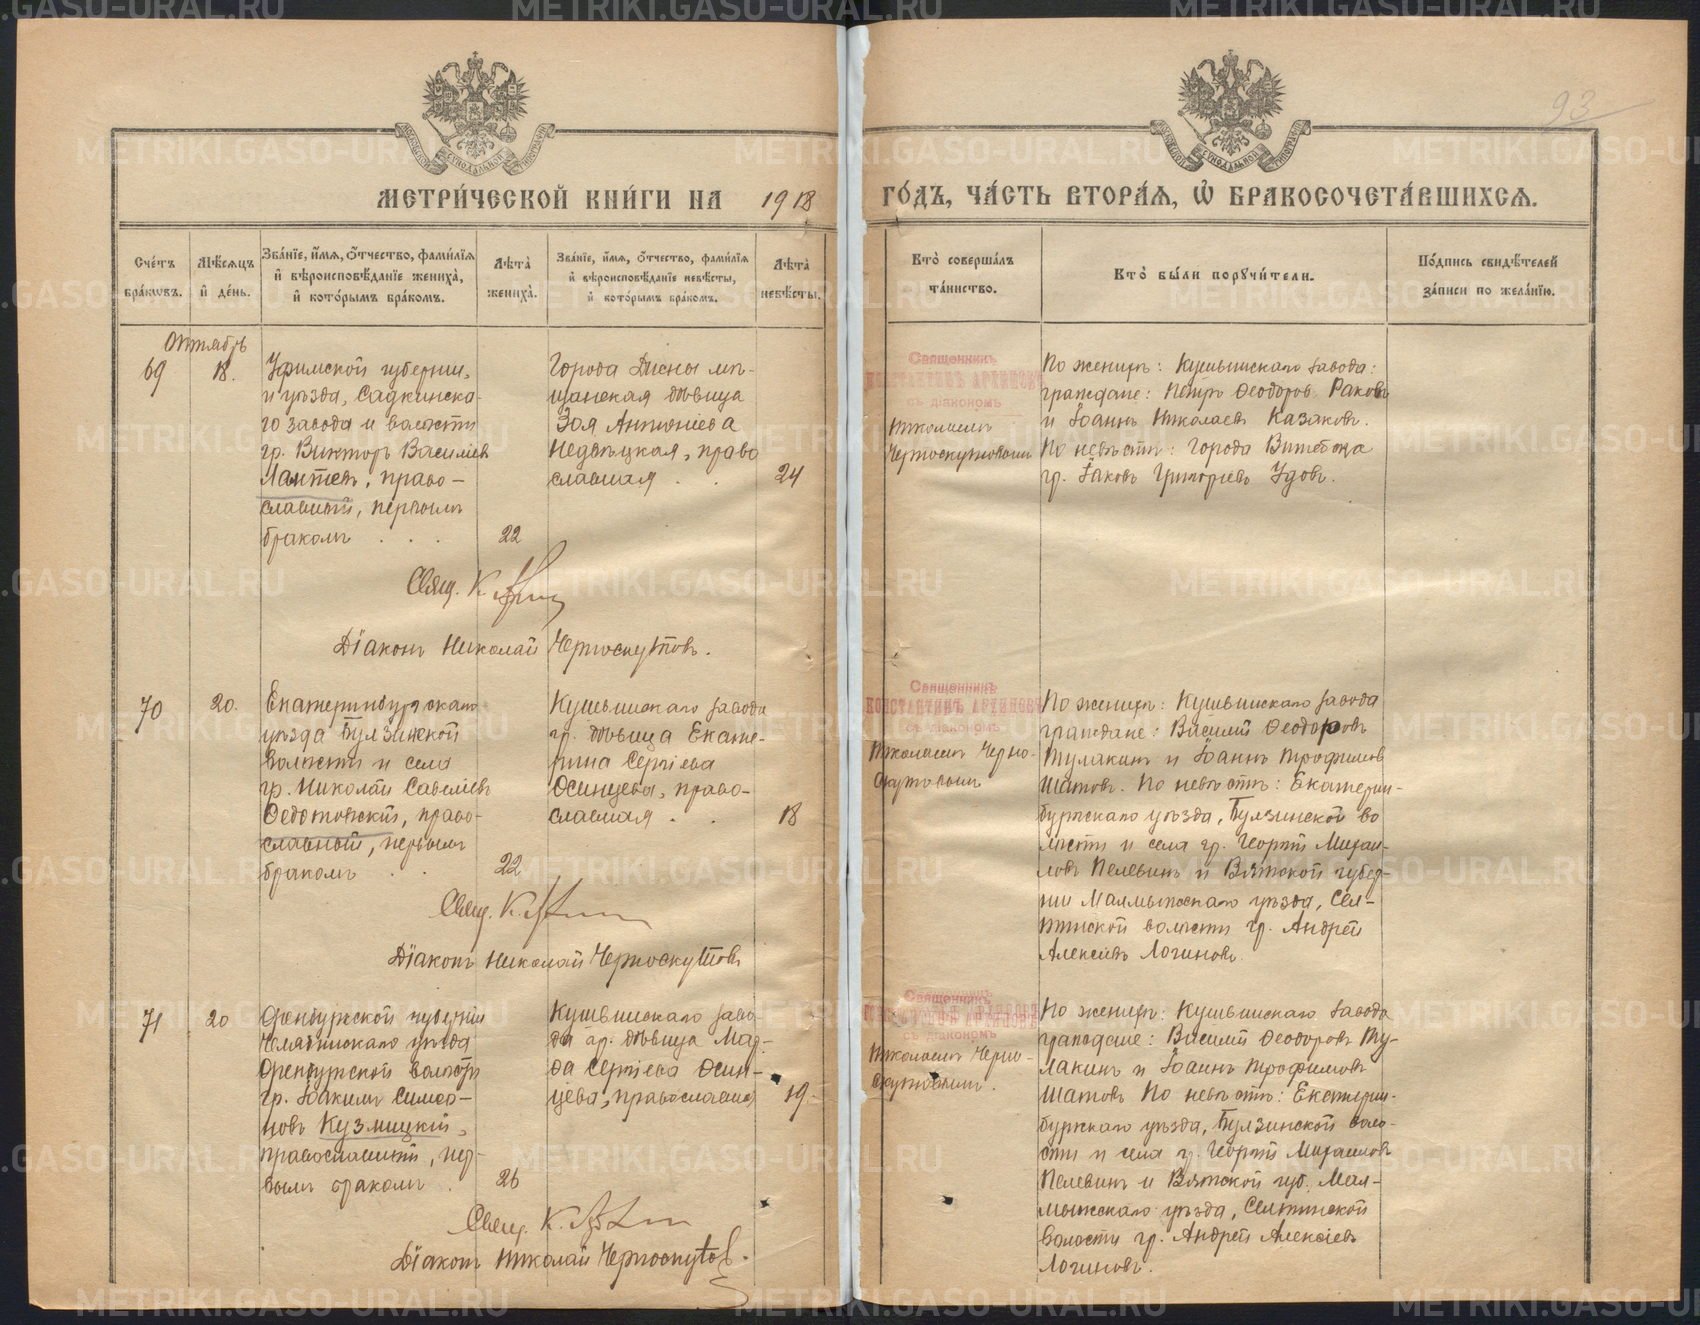 93
МЕТРИ́ЧЕСКОЙ КНИ́ГИ НА 1918 ГО́ДЪ, ЧА́СТЬ ВТОРА́Я, Ѽ БРАКОСОЧЕТА́ВШИХСЯ.
Сче́тъ бра́кѡвъ.
Мѣ́сяцъ и҆ де́нь.
Зва́нїе, и҆́мя, ѻ҆́тчество, фами́лїя и҆ вѣроисповѣ́данїе жениха̀, и҆ кото́рымъ бра́комъ.
Лѣ́та жениха̀.
Зва́нїе, и҆́мя, ѻ҆́тчество, фами́лїя и҆ вѣроисповѣ́данїе невѣ́сты, и҆ кото́рымъ бра́комъ.
Лѣ́та невѣ́сты.
Кто̀ соверша́лъ та́инство.
Кто̀ бы́ли порꙋчи́тели.
По́дпись свидѣ́телей за́писи по жела́нїю.
Октябрь
69
18.
Уфимской губернии,
и уѣзда, Садкинска-
го завода и волости
гр. Викторъ Василіевъ
Лаптевъ, право-
славный, первымъ
бракомъ . . .
22
Города Дисны мѣ-
щанская дѣвица
Зоя Антоніева
Недвѣцкая, право
славная . .
24
Священникъ
КОНСТАНТИНЪ
съ діакономъ
Николаемъ
Черноскутовымъ
По женихѣ: Кушвинскаго завода:
граждане: Петръ Ѳеодоров. Раковъ
и Іоаннъ Николаевъ Казаковъ.
По невѣстѣ: города Витебска
гр. Іаковъ Григоріевъ Удовъ.
Свящ. К.
Діаконъ Николай Черноскутовъ.
70
20.
Екатеринбургскаго
уѣзда Булзинской
волости и села
гр. Николай Савеліевъ
Ѳедотовскій, право-
славный, первымъ
бракомъ . .
22
Кушвинскаго завода
гр. дѣвица Екате-
рина Сергіева
Осинцева, право-
славная . .
18
Священникъ
КОНСТАНТИНЪ
съ діакономъ
Николаемъ Черно-
скутовымъ
По женихѣ: Кушвинскаго завода
граждане: Василій Ѳеодоровъ
Тулакинъ и Іоаннъ Трофимовъ
Шатовъ. По невѣстѣ: Екатерин-
бургскаго уѣзда, Булзинской во
лости и села гр. Георгій Михаи-
ловъ Пелевинъ и Вятской губер-
ніи Малмыжскаго уѣзда, Сел-
тинской волости гр. Андрей
Алексѣевъ Логиновъ.
Свящ. К.
Діаконъ Николай Черноскутовъ
71
20
Оренбургской губерніи
Челябинскаго уѣзда
Оренбургской волости
гр. Іоакимъ Симео-
новъ Кузмицкій,
православный, пер-
вымъ бракомъ .
26
Кушвинскаго заво-
да гр. дѣвица Мар-
ѳа Сергіева Осин-
цева, православная
19.
Священникъ
съ діакономъ
Николаемъ Черно-
скутовымъ.
По женихѣ: Кушвинскаго завода
граждане: Василій Ѳеодоровъ Ту-
лакинъ и Іоаннъ Трофимовъ
Шатовъ По невѣстѣ: Екатерин-
бургскаго уѣзда, Булзинской воло-
сти и села гр. Георгій Михаиловъ
Пелевинъ и Вятской губ. Мал-
мыжскаго уѣзда, Селтинской
волости гр. Андрей Алексіевъ
Логиновъ.
Свящ. К.
Діаконъ Николай Черноскутовъ.
METRIKI.GASO-URAL.RU